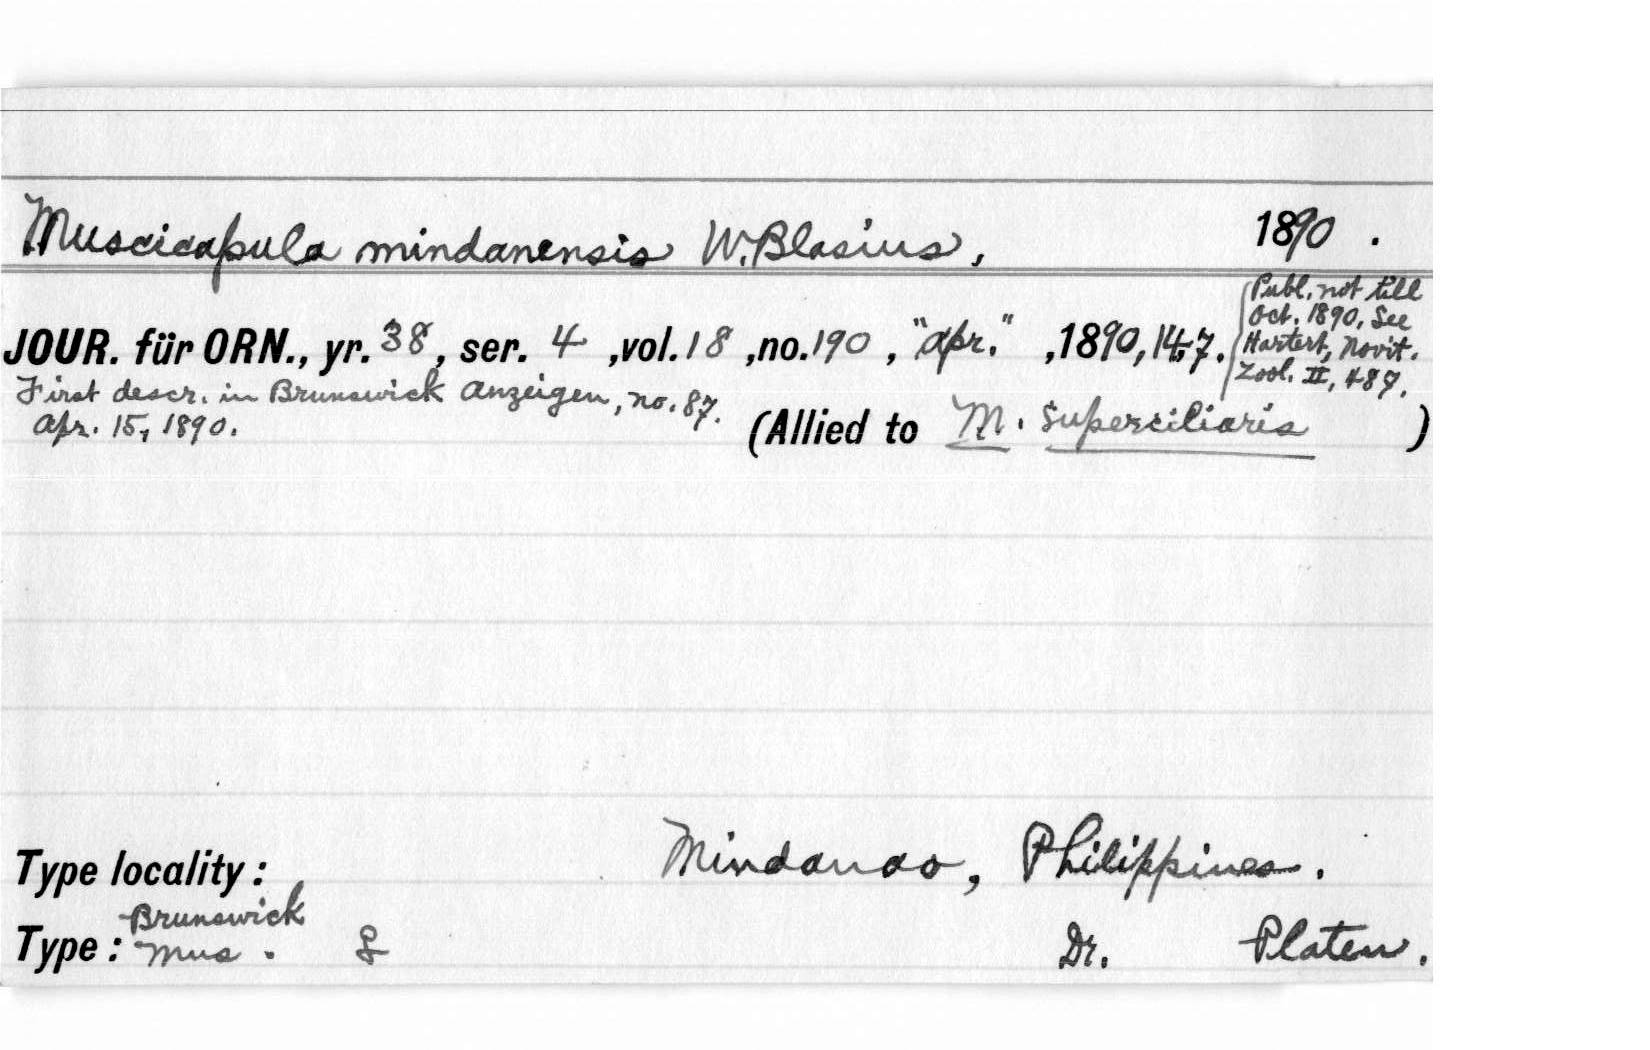 Muscicapula mindanensis W. Blasius, 1890 .
JOUR. für ORN., yr. 38, ser. 4 ,vol. 18 ,no. 190 , "Apr." ,1890, 147. (Publ. not till
Oct. 1890, See
Hartert, Novit.
Zool. II, 487.
First descr. in Brunswick Anzeigen, no. 87.
Apr. 15, 1890.
(Allied to M. superciliaris )
Type locality : Mindanao, Philippines .
Type : Brunswick
Mus . Dr. Platen .